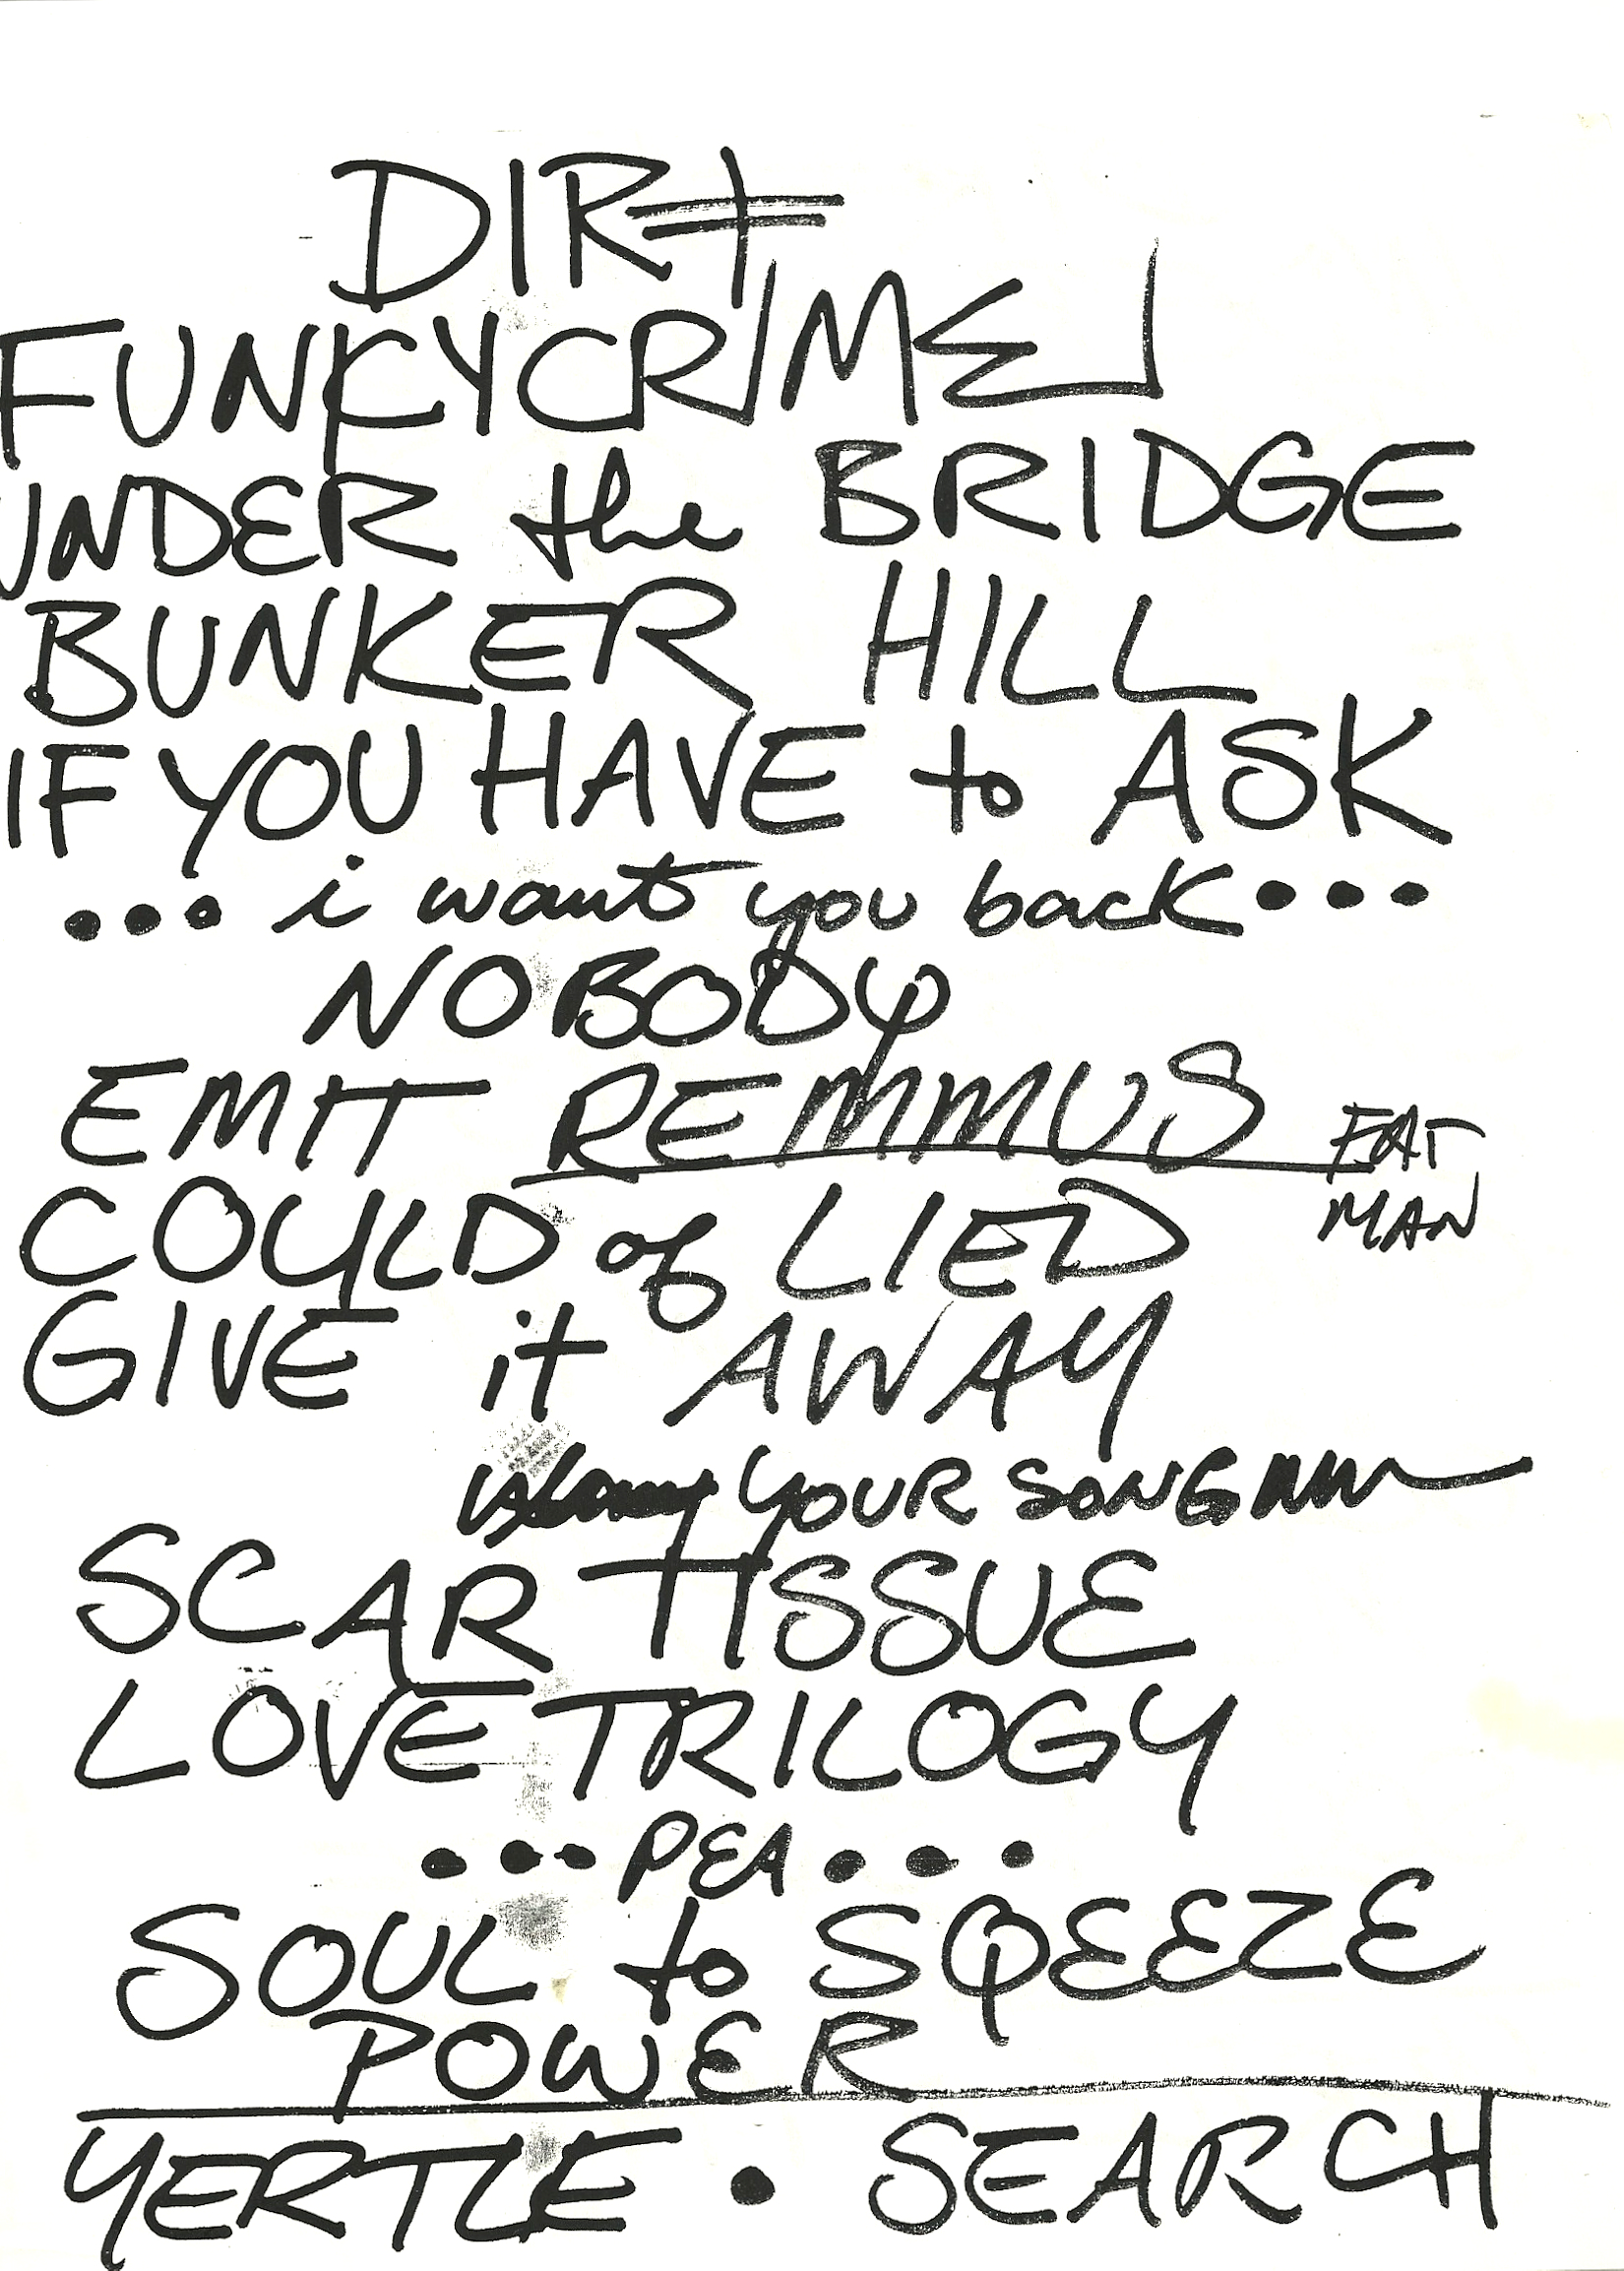 DIRt
FUNKYCRIME
UNDER the BRIDGE
BUNKER HILL
IF YOU HAVE to ASK
... i want you back ...
NOBODY
EMIT REMMUS FAT
MAN
COULD of LIED
GIVE it AWAY
YOUR SONG
SCAR TISSUE
LOVE TRILOGY
... PEA ...
SOUL to SQEEZE
POWER
YERTLE • SEARCH